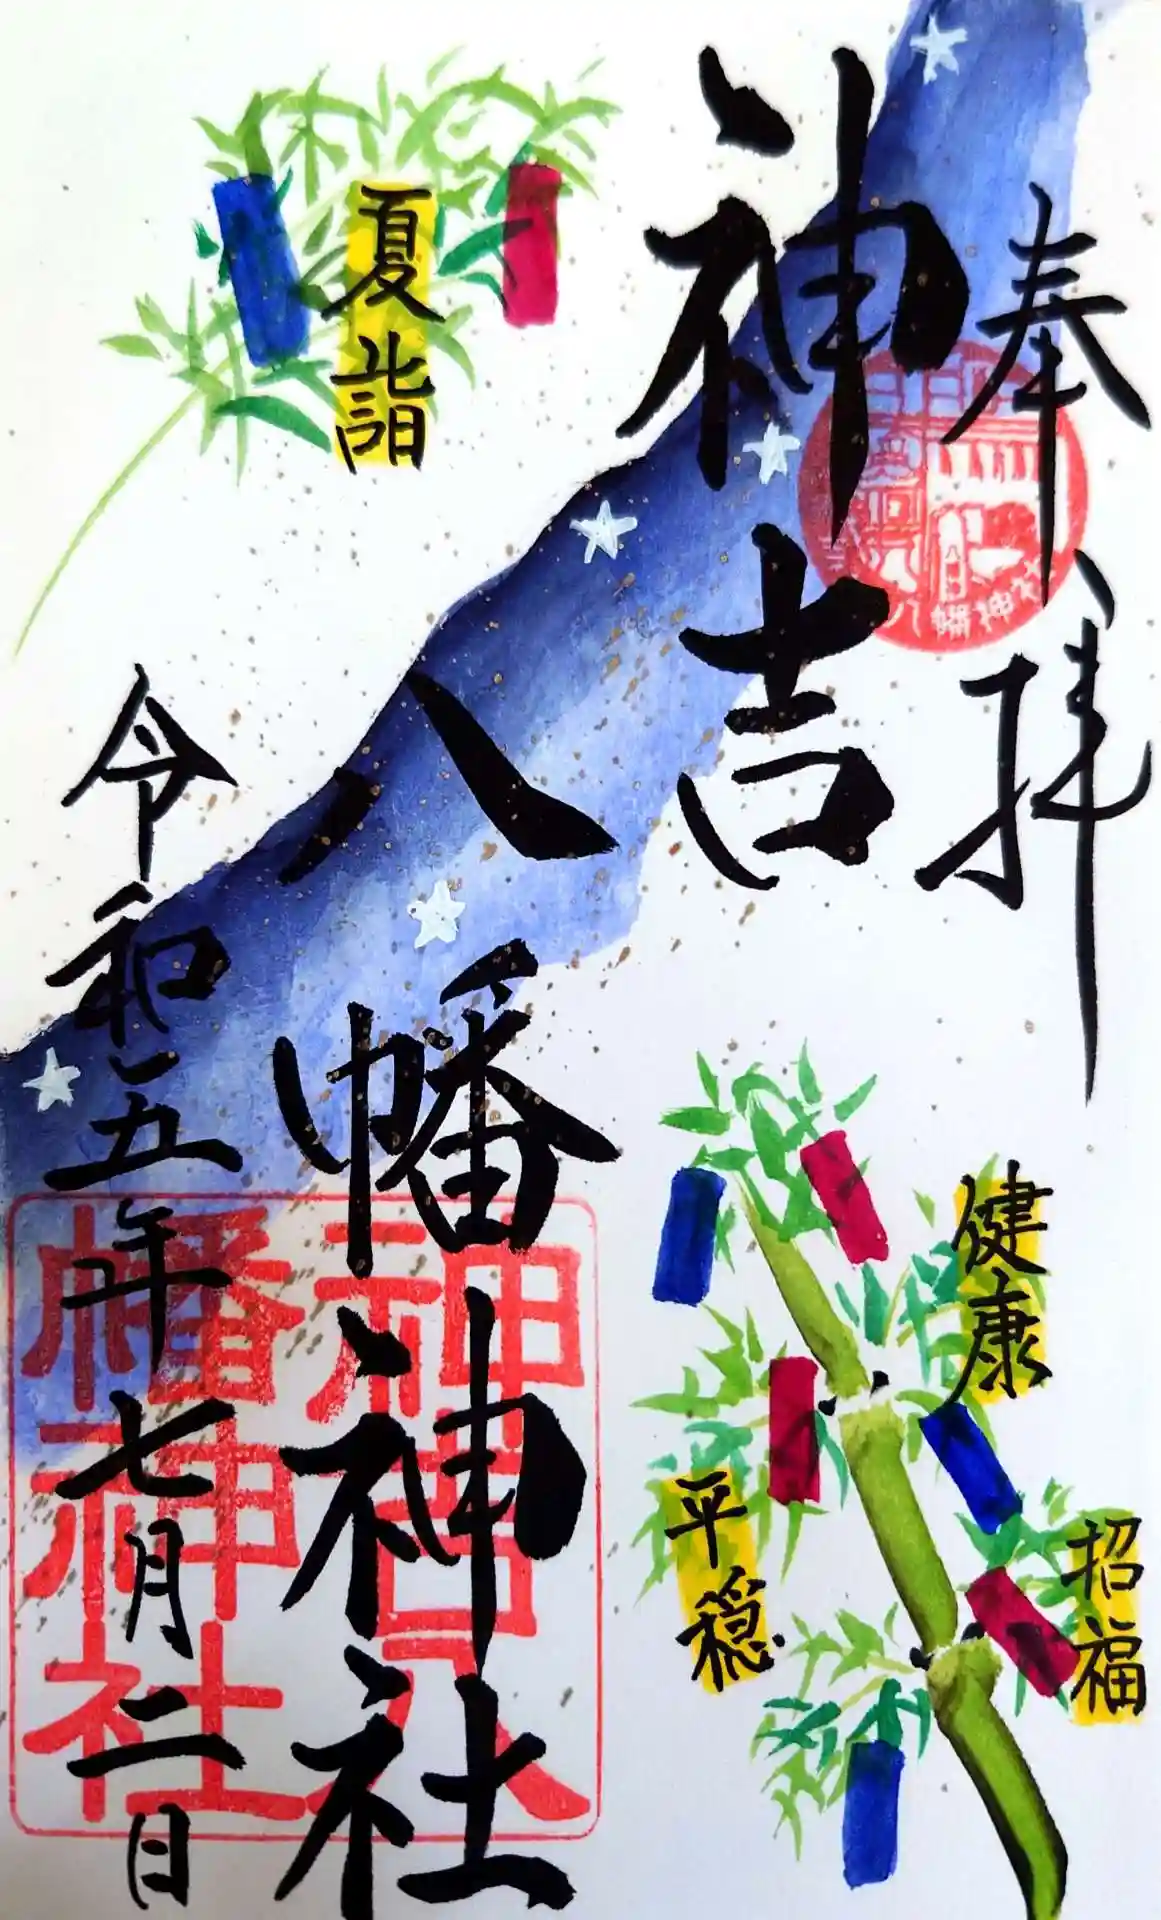 奉拝
神吉
八幡神社
令和五年七月二日
夏詣
健康
平穏
招福
神吉八
幡神社
八幡神社